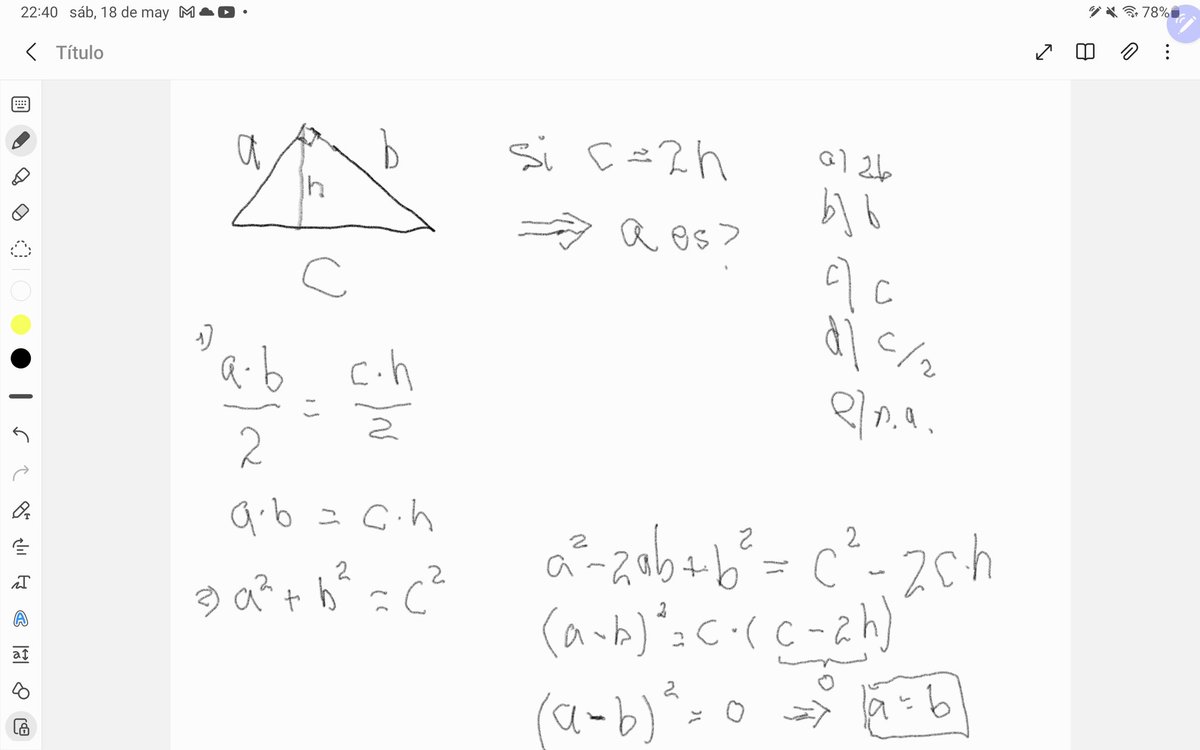 22:40 sáb, 18 de may
78%
Título
a b
h
C
si c = 2h
⇒ a es?
a) 2b
b) b
c) c
d) c/2
e) n.a.
1)
a·b/2 = c·h/2
a·b = c·h
⇒ a² + b² = c²
a² - 2ab + b² = c² - 2c·h
(a-b)² = c·(c-2h)
0
(a-b)² = 0 ⇒ a = b